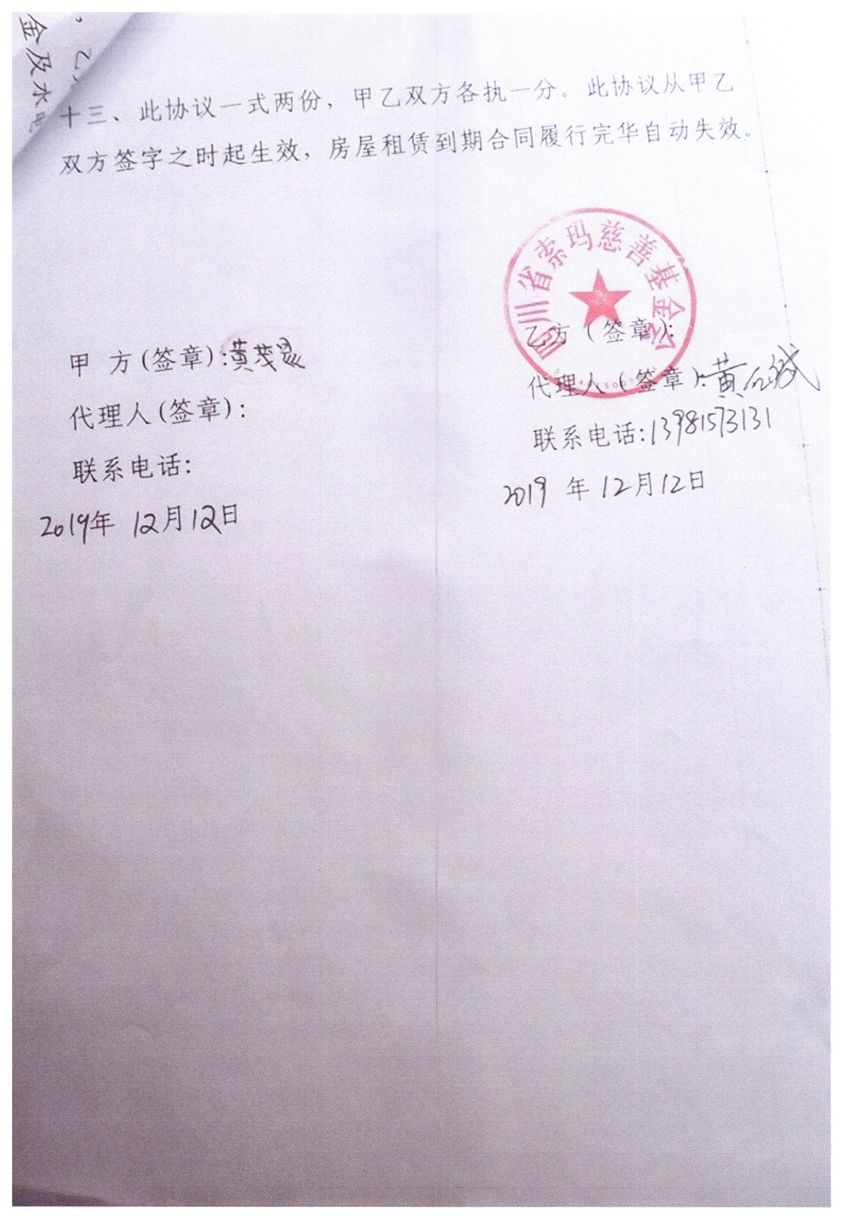 金及水电
，乙
十三、此协议一式两份，甲乙双方各执一分。此协议从甲乙
双方签字之时起生效，房屋租赁到期合同履行完华自动失效。
四川省索玛慈善基金会
甲 方(签章):黄茂
代理人(签章):
联系电话:
2019年 12月12日
乙方（签章）:
代理人（签章）:黄
联系电话:13981573131
2019 年 12月12日